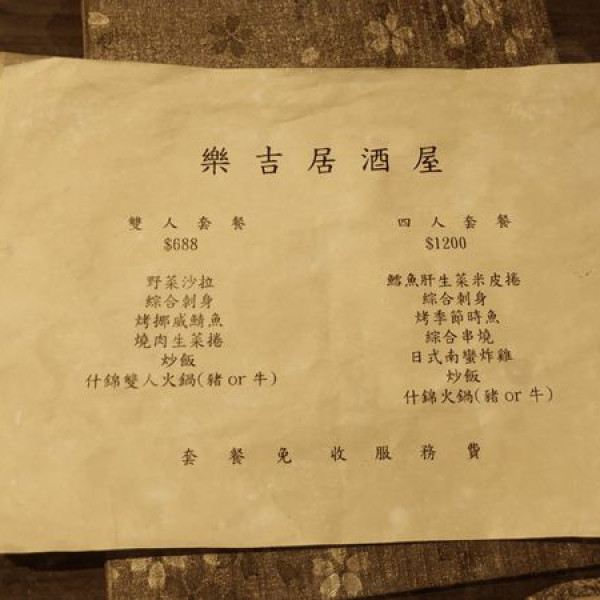 樂吉居酒屋
雙人套餐
$688
野菜沙拉
綜合刺身
烤挪威鯖魚
燒肉生菜捲
炒飯
什錦雙人火鍋(豬 or 牛)
四人套餐
$1200
鱈魚肝生菜米皮捲
綜合刺身
烤季節時魚
綜合串燒
日式南蠻炸雞
炒飯
什錦火鍋(豬 or 牛)
套餐免收服務費